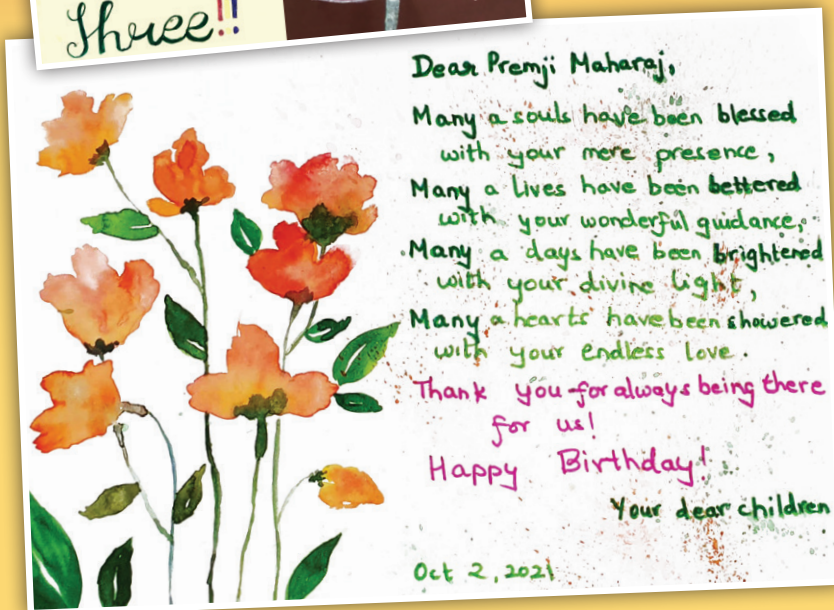 Three!!
Dear Premji Maharaj,
Many a souls have been blessed
with your mere presence,
Many a lives have been bettered
with your wonderful guidance,
Many a days have been brightened
with your divine light,
Many a hearts have been showered
with your endless love.
Thank you for always being there
for us!
Happy Birthday!
Your dear children
Oct 2, 2021